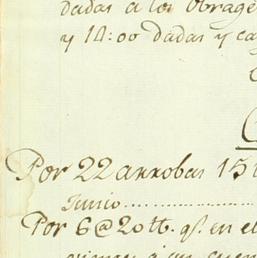 dadas a los Obrage
y 18:00 dadas y ca
Por 22 arrobas 15 t
Junio
Por 6@20 tt. qe. en el